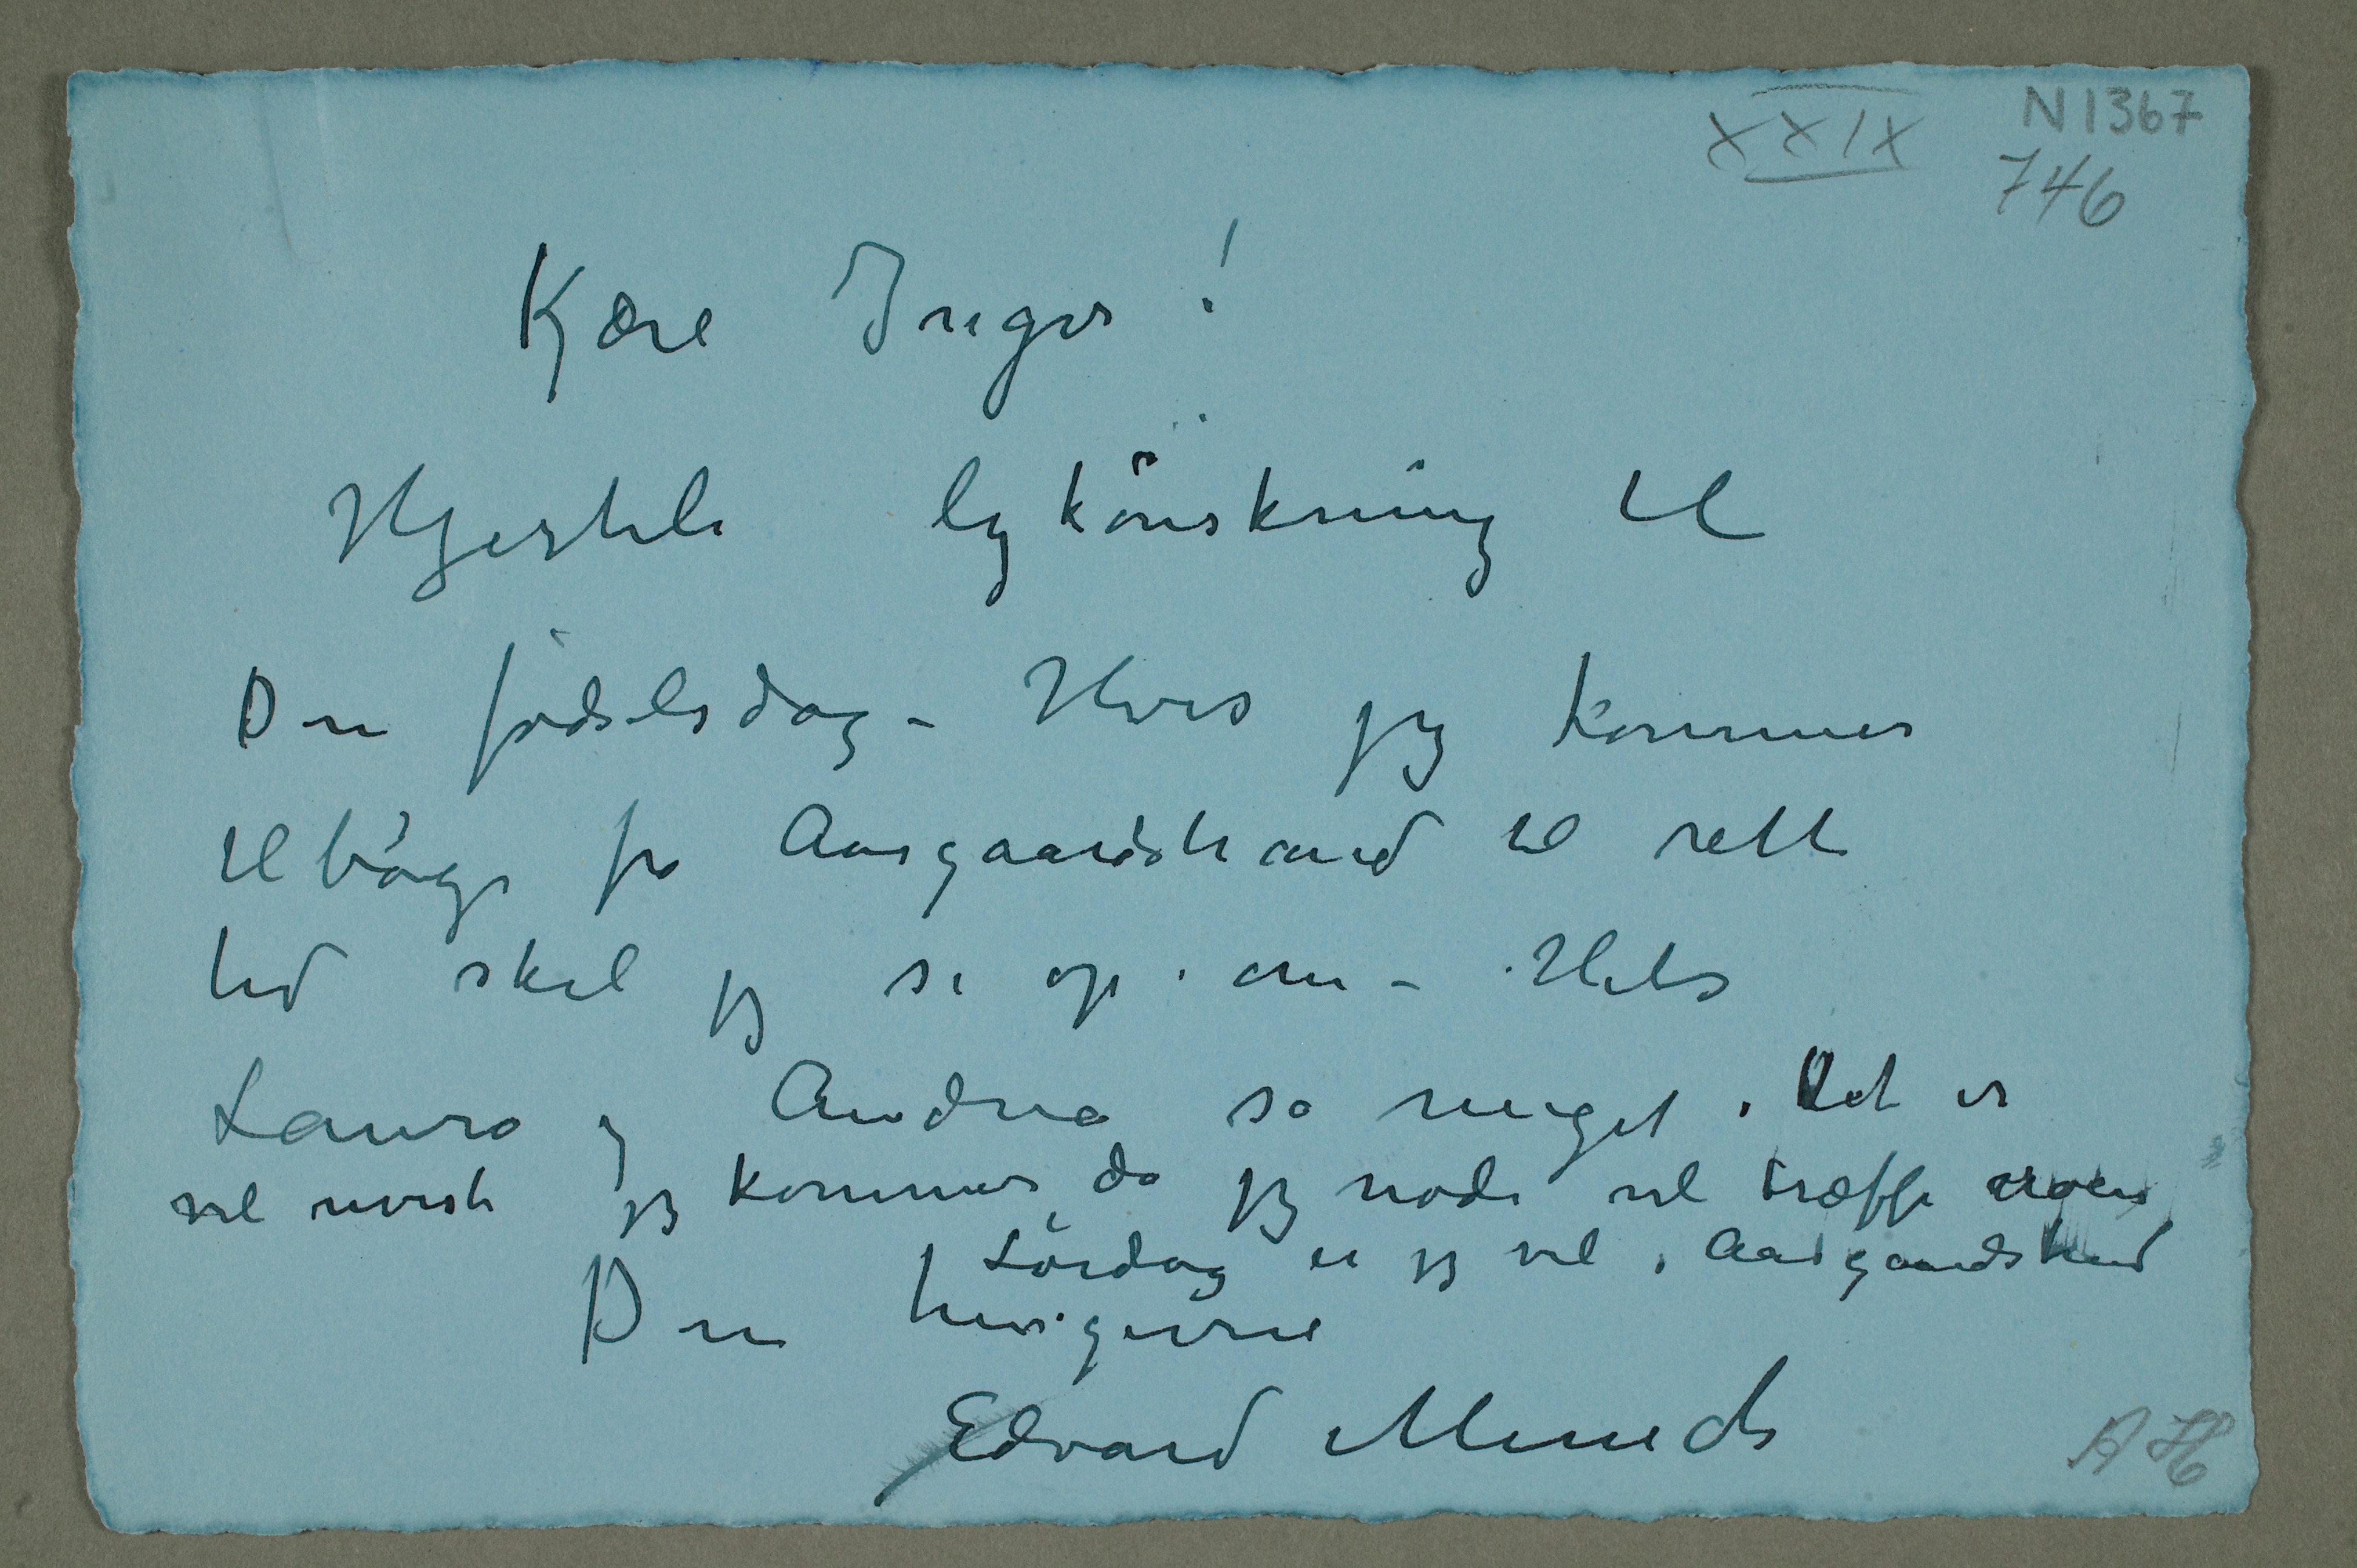 XXIX
N 1367
746
Kjære Inger!
Hjertelig lykönskning til
Din födselsdag – Hvis jeg kommer
tilbage fra Aasgaardstrand til rette
tid skal jeg se op i om – Hils
Laura og Andrea så meget. Det er
vel uvist jeg kommer da jeg nødig vil træffe
Lördag er jeg vel i Aasgaardstrand
Din hengivne
Edvard Munch